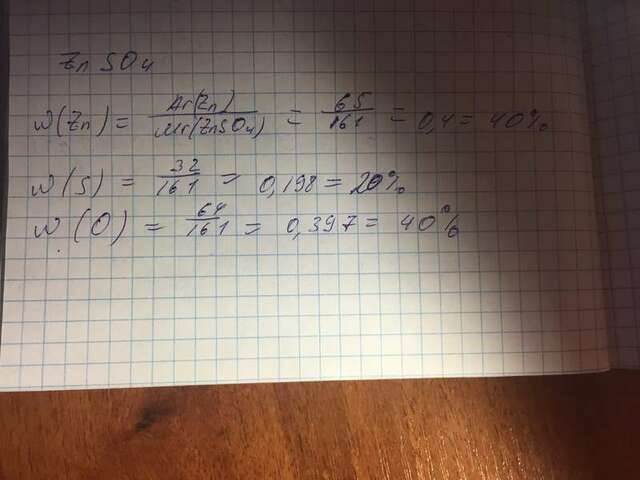 ZnSO₄
w(Zn) = Ar(Zn)/Mr(ZnSO₄) = 65/161 = 0,4 = 40%
w(S) = 32/161 = 0,198 = 20%
w(O) = 64/161 = 0,397 = 40%